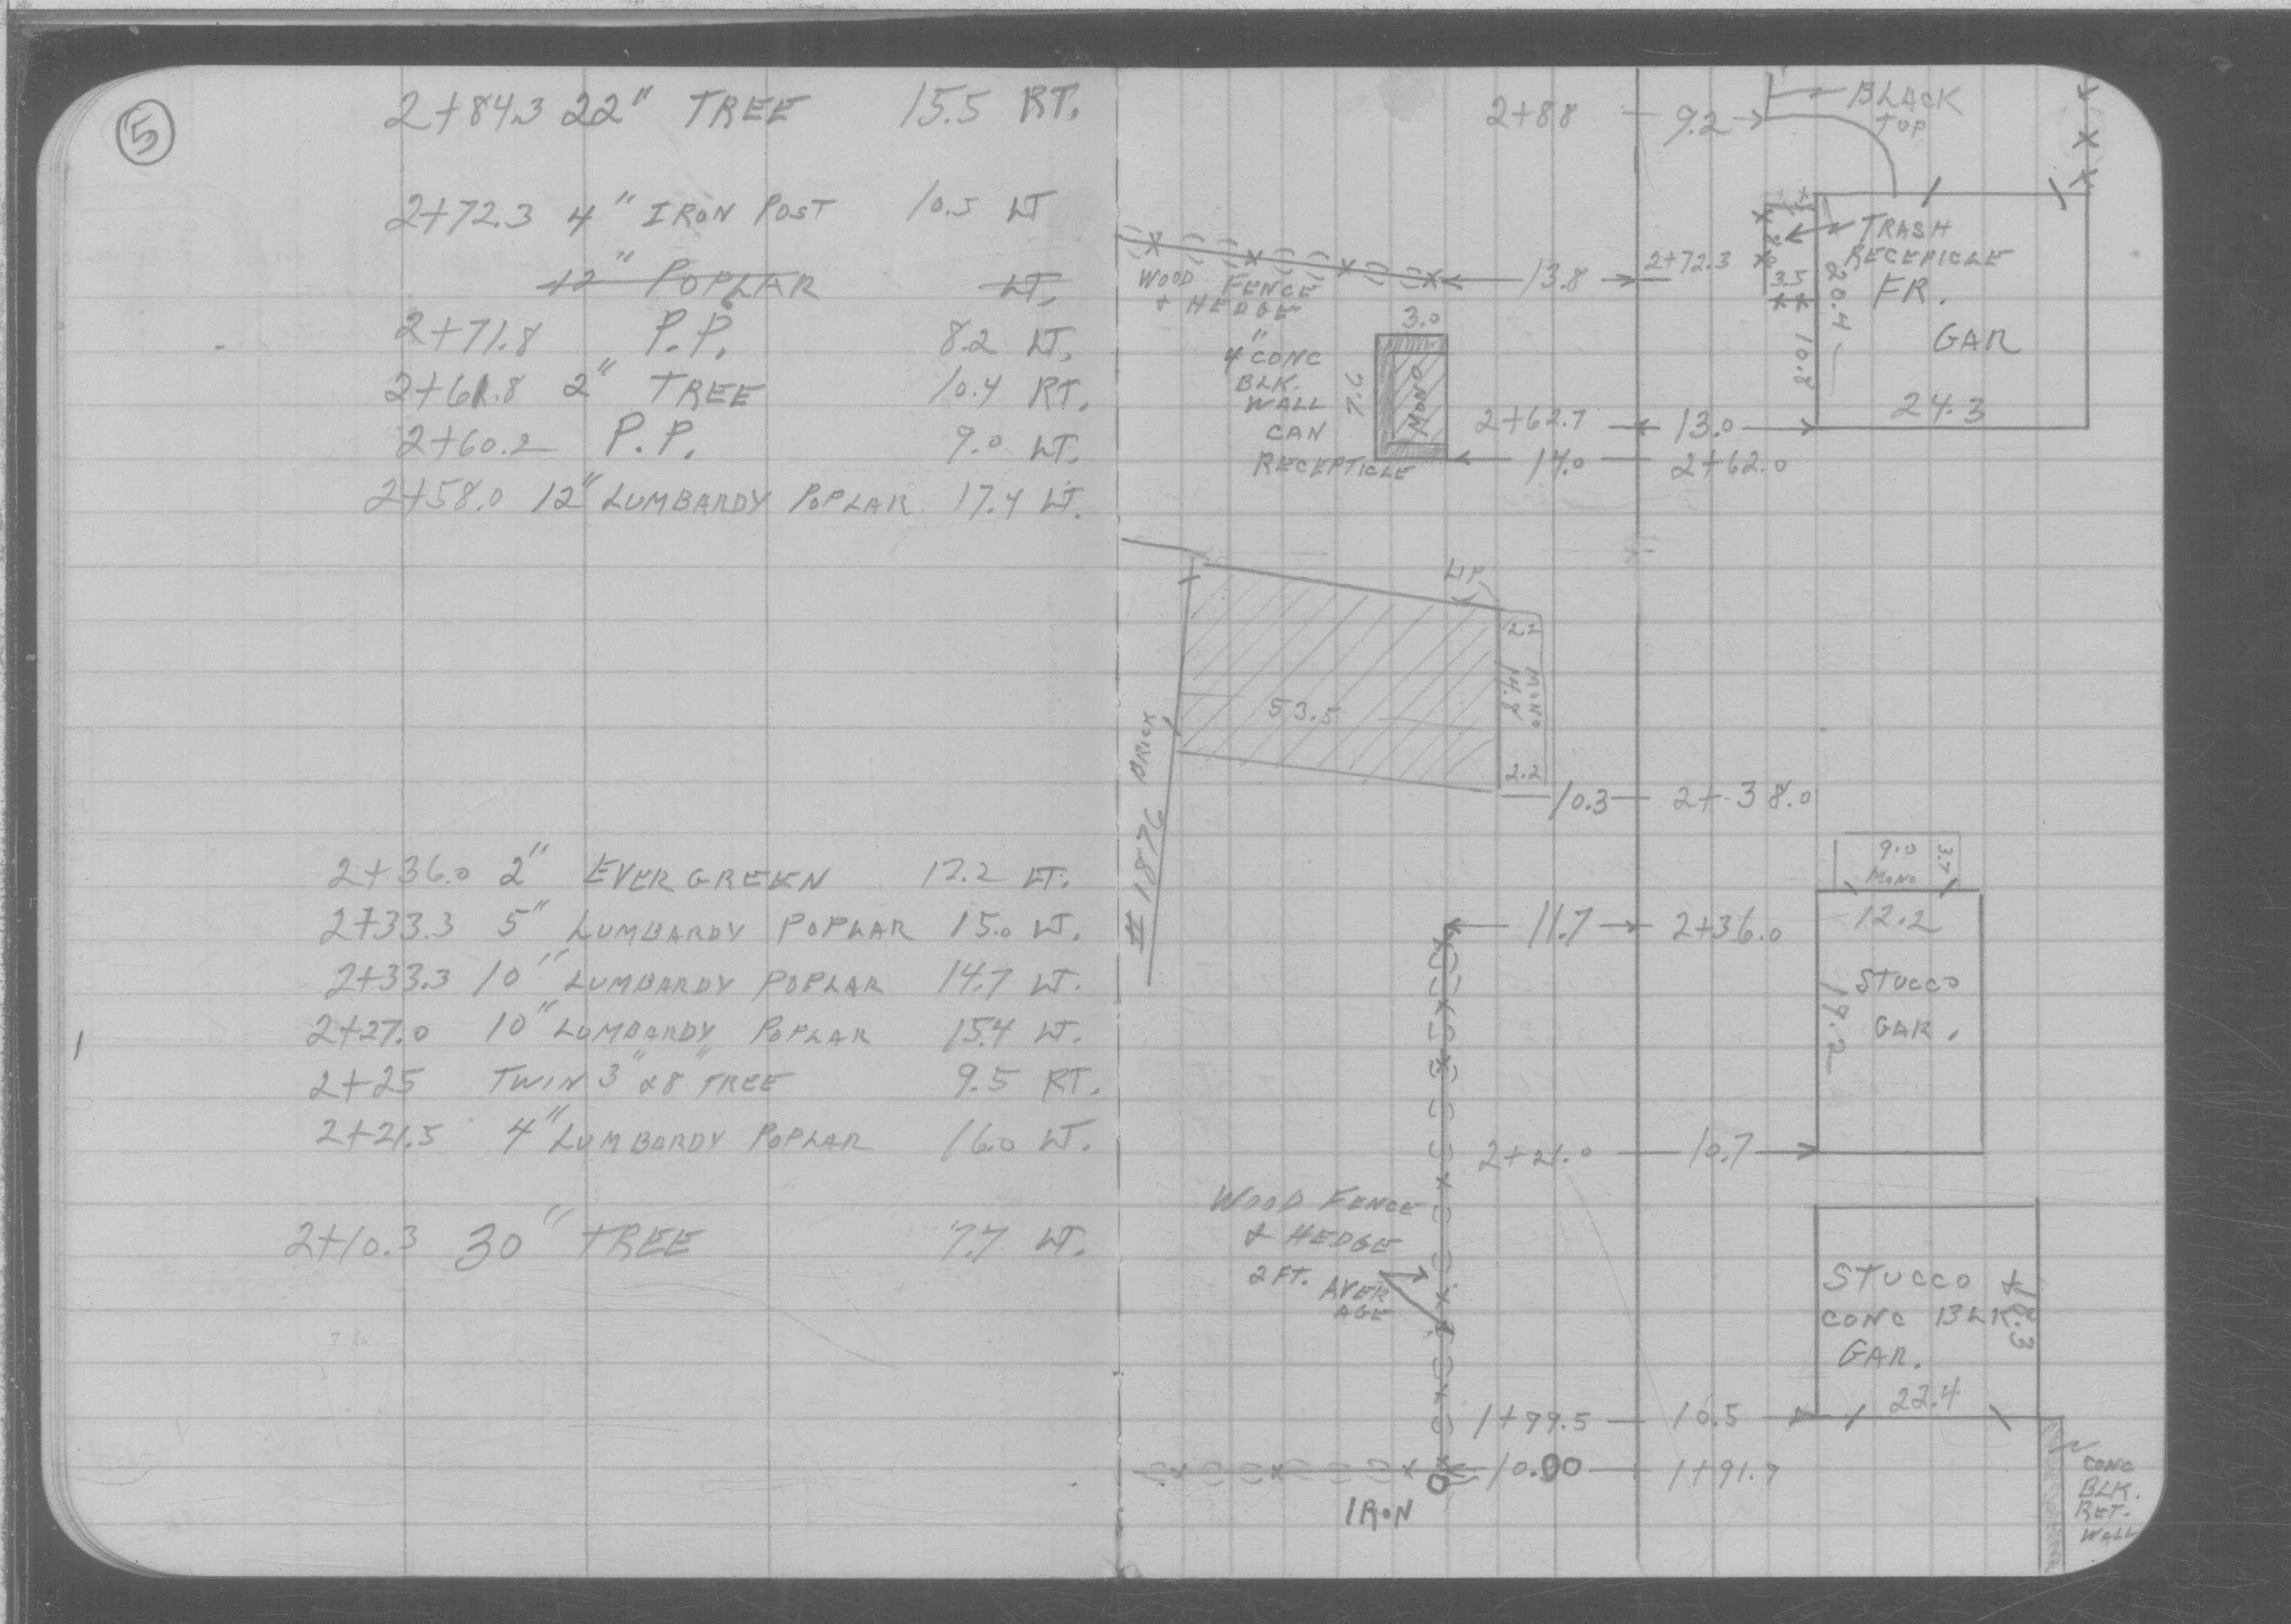 5
2+84.3 22" TREE 15.5 RT.
2+72.3 4" IRON POST 10.5 LT
12" POPLAR LT.
2+71.8 P.P. 8.2 LT.
2+61.8 2" TREE 10.4 RT.
2+60.2 P.P. 9.0 LT.
2+58.0 12" LUMBARDY POPLAR 17.4 LT.
2+36.0 2" EVER GREEN 12.2 LT.
2+33.3 5" LUMBARDY POPLAR 15.0 LT.
2+33.3 10" LUMBARDY POPLAR 14.7 LT.
2+27.0 10" LUMBARDY POPLAR 15.4 LT.
2+25 TWIN 3" & 8" TREE 9.5 RT.
2+21.5 4" LUMBARDY POPLAR 16.0 LT.
2+10.3 30" TREE 7.7 LT.
2+88 9.2
BLACK
TOP
WOOD FENCE
& HEDGE
13.8 2+72.3
TRASH
RECEPICLE
3.5
20.4
10.8
FR.
GAR
24.3
3.0
4" CONC
BLK.
WALL
CAN
RECEPTICLE
7.2
MONO
2+62.7 13.0
14.0 2+62.0
LIP
2.2
MONO
14.8
53.5
2.2
#1876 BRICK
10.3 2+38.0
9.0
MONO
3.7
11.7 2+36.0
12.2
STUCCO
GAR.
19.2
2+21.0 10.7
WOOD FENCE
& HEDGE
2 FT. AVER
AGE
STUCCO +
CONC BLK
GAR.
18.3
22.4
1+99.5 10.5
10.00 1+91.7
IRON
CONC
BLK.
RET.
WALL